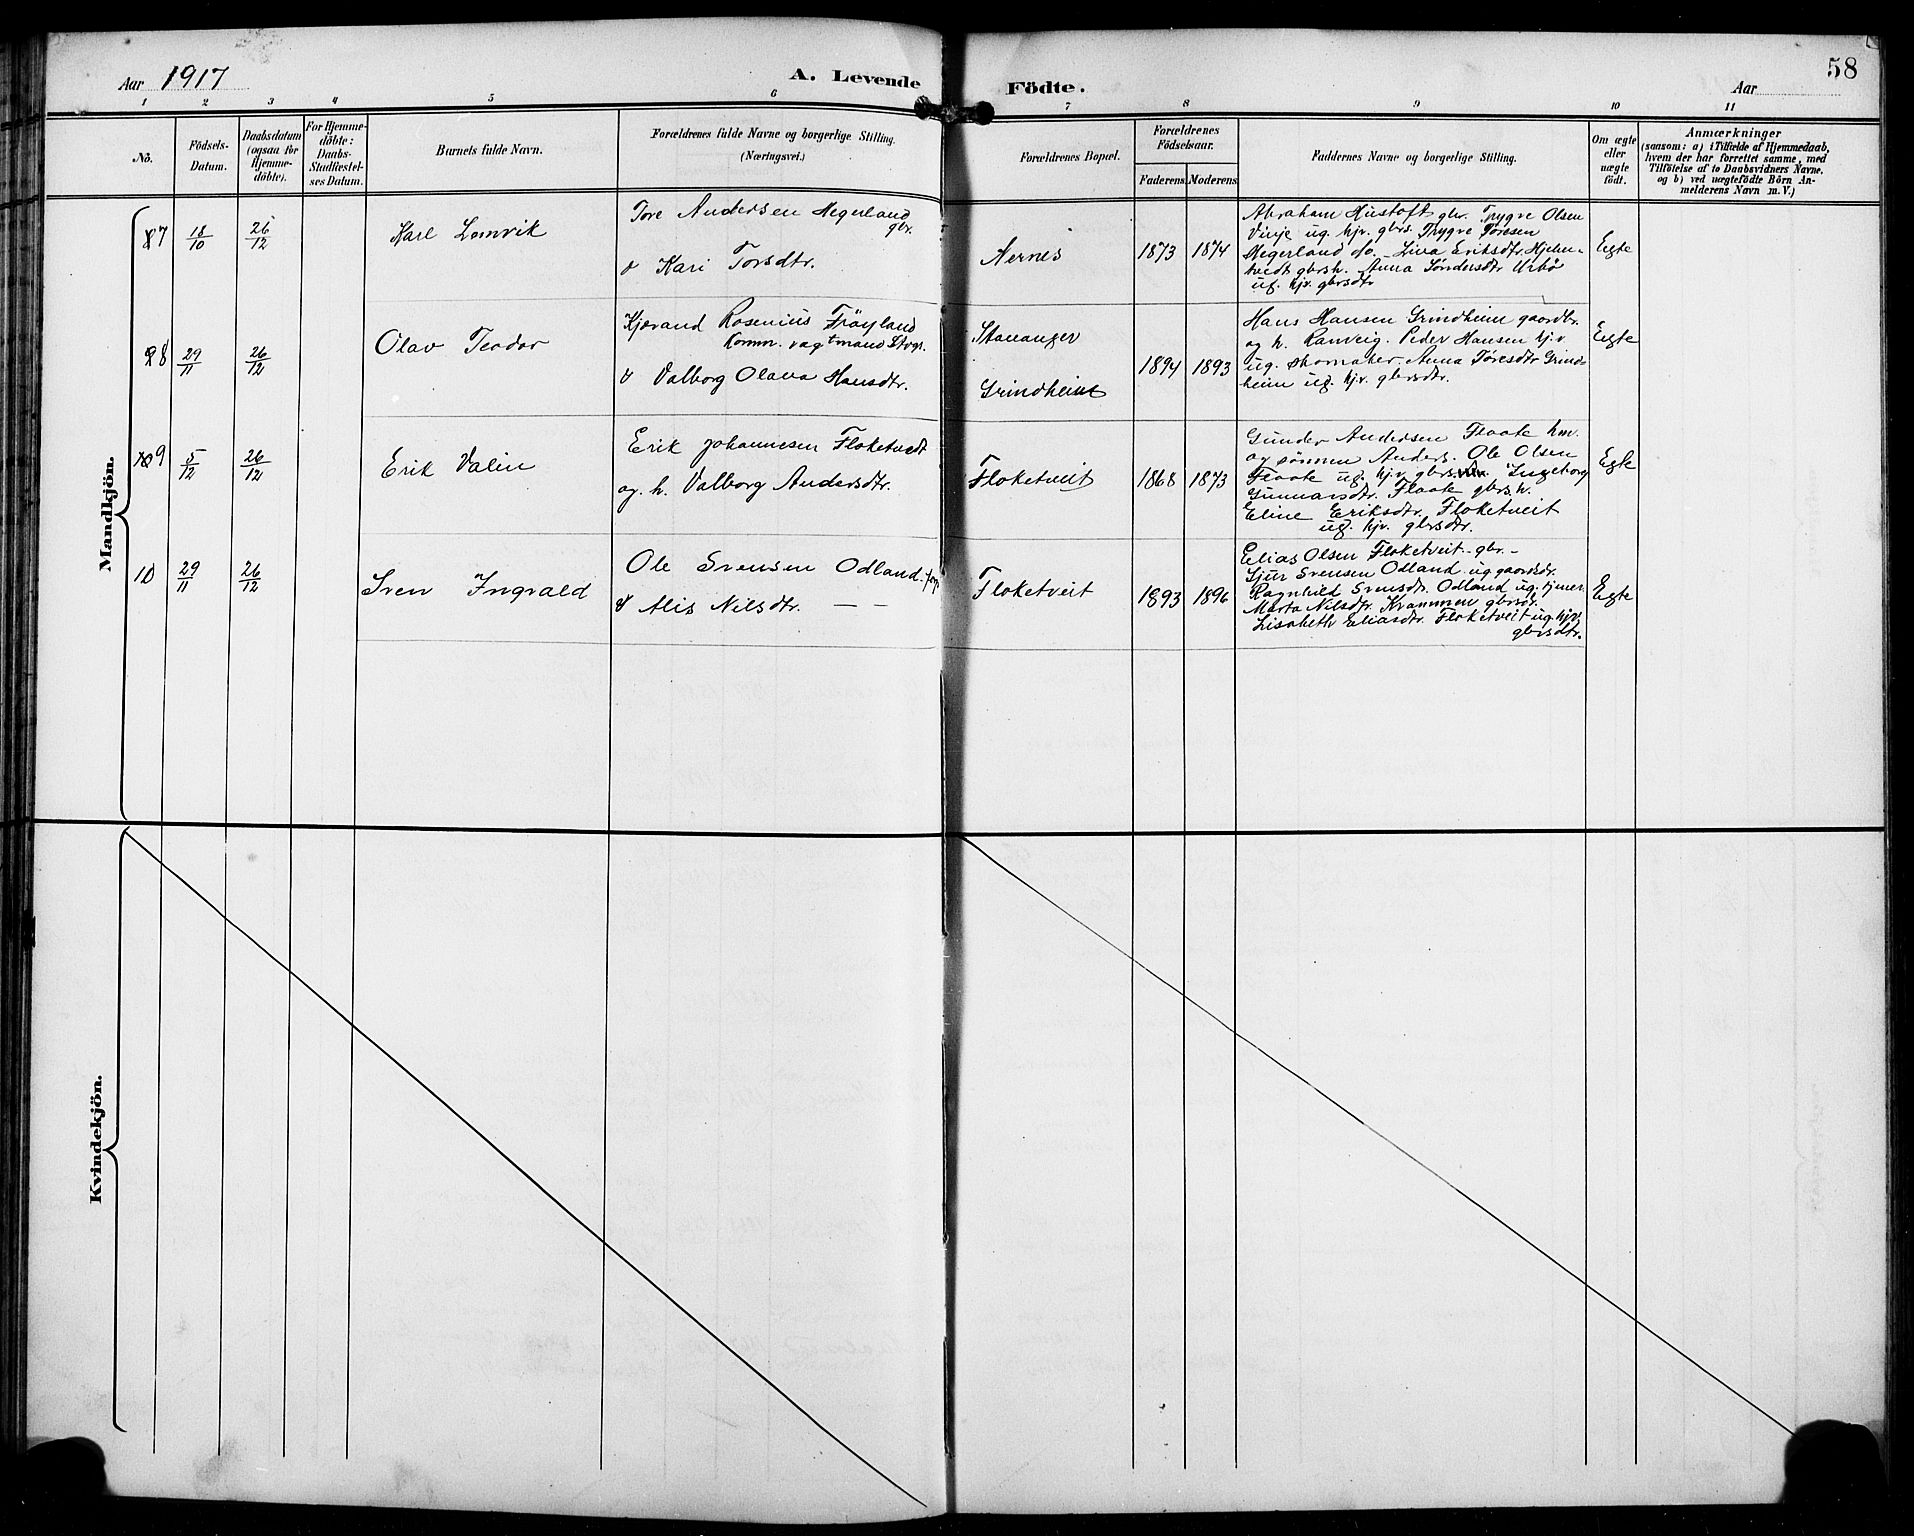 Aar 1917
A. Levende
Födte.
Aar
58
1 2 3 4 5 6 7 8 9 10 11
No.
Födsels-
Datum.
Daabsdatum
(ogsaa for
Hjemme-
döbte).
For Hjemme-
döbte:
Daabs-
Stadfæstel-
ses Datum.
Barnets fulde Navn.
Forældrenes fulde Navne og borgerlige Stilling.
(Næringsvei.)
Forældrenes Bopæl.
Forældrenes
Födselsaar.
Faderens
Moderens
Faddernes Navne og borgerlige Stilling.
Om ægte
eller
uægte
födt.
Anmærkninger
(saasom: a) i Tilfælde af Hjemmedaab,
hvem der har forrettet samme, med
Tilföielse af to Daabsvidners Navne,
og b) ved uægtefödte Börn An-
melderens Navn m. V.)
Mandkjön.
7
18/10
26/12
Karl Lomvik
Tore Andersen Hegerland
gbr.
& Kari Torsdtr.
Nernes
1873 1874
Abraham Hustoft gbr. Trygve Olsen
Vinje ug. hjv. gbrs. Trygve Toresen
Hegerland do. - Lina Eriksdtr. Hjelm-
tvedt gbrsh. Anna Söndersdtr Urbö
ug. hjv. gbrsdtr
Egte
8
29/11
26/12
Olav Teodor
Kjærand Rosenius Fröyland
Komm. vagtmand Stvgr.
& Valborg Olava Hansdtr.
Stavanger
Grindheim
1894 1893
Hans Hansen Grindheim gaardbr.
og h. Ranveig. Peder Hansen hj.v
ug. skomaker. Anna Töresdtr Grind-
heim ug. hj.v. gbrsdtr.
Egte
9
5/12
26/12
Erik Valin
Erik Johannesen Floketvedt
og. h. Valborg Andersdtr.
Floketveit
1868 1873
Gunder Andersen Flaate hm.
og sönnen Anders. Ole Olsen
Flaate ug. hj.v. gbrs. Ingeborg
Gunnarsdtr. Flaate gbrs.h.
Eline Eriksdtr. Floketveit
ug. hjv. gbrsdtr.
Egte
10
29/11
26/12
Sven Ingvald
Ole Svensen Odland.
& Alis Nilsdtr. — —
Floketveit
1893 1896
Elias Olsen Floketveit - gbr. -
Gjur Svensen Odland. ug gaardsdr.
Ragnhild Svensdtr. Odland ug. tjener.
Marta Nilsdtr. Krammen gbrsdr.
Lisabeth Eliasdtr. Floketveit ug. hjv.
gbrsdtr.
Egte
Kvindekjön.